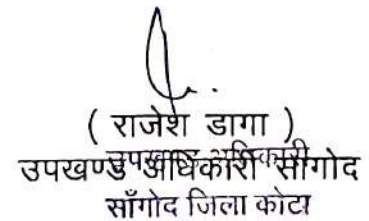 ( राजेश डागा )
उपखण्ड अधिकारी
उपखण्ड अधिकारी सांगोद
साँगोद जिला कोटा